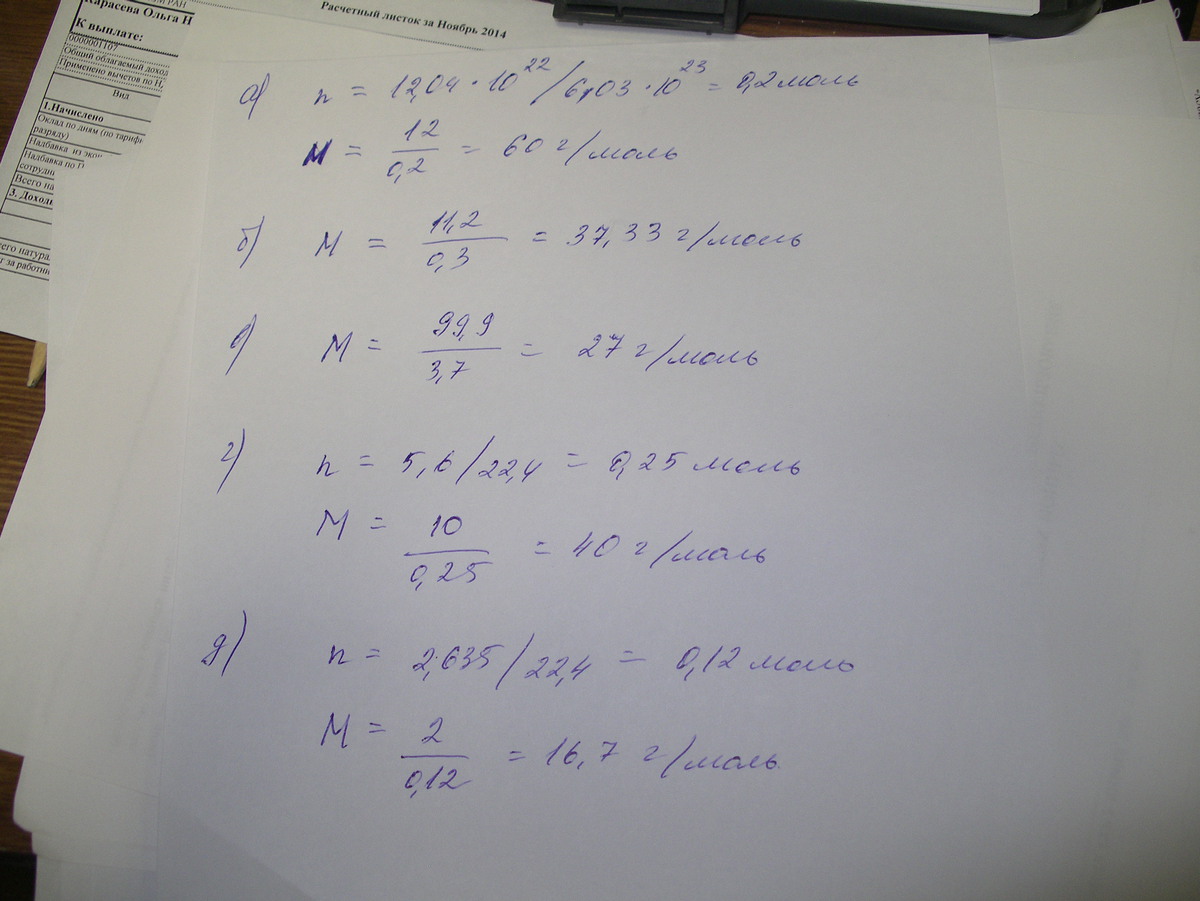 й РАН
Карасева Ольга Н
К выплате:
0000001107
Общий облагаемый доход
Применено вычетов по Н
Вид
1.Начислено
Оклад по дням (по тариф
разряду)
Надбавка из экон
Надбавка по
сотрудн
Всего на
3. Доходы
его натура
г за работни
Расчетный листок за Ноябрь 2014
а) n = 12,04 · 10²² / 6,03 · 10²³ = 0,2 моль
M = 12/0,2 = 60 г/моль
б) M = 11,2/0,3 = 37,33 г/моль
в) M = 99,9/3,7 = 27 г/моль
г) n = 5,6/22,4 = 0,25 моль
M = 10/0,25 = 40 г/моль
д) n = 2,635/22,4 = 0,12 моль
M = 2/0,12 = 16,7 г/моль